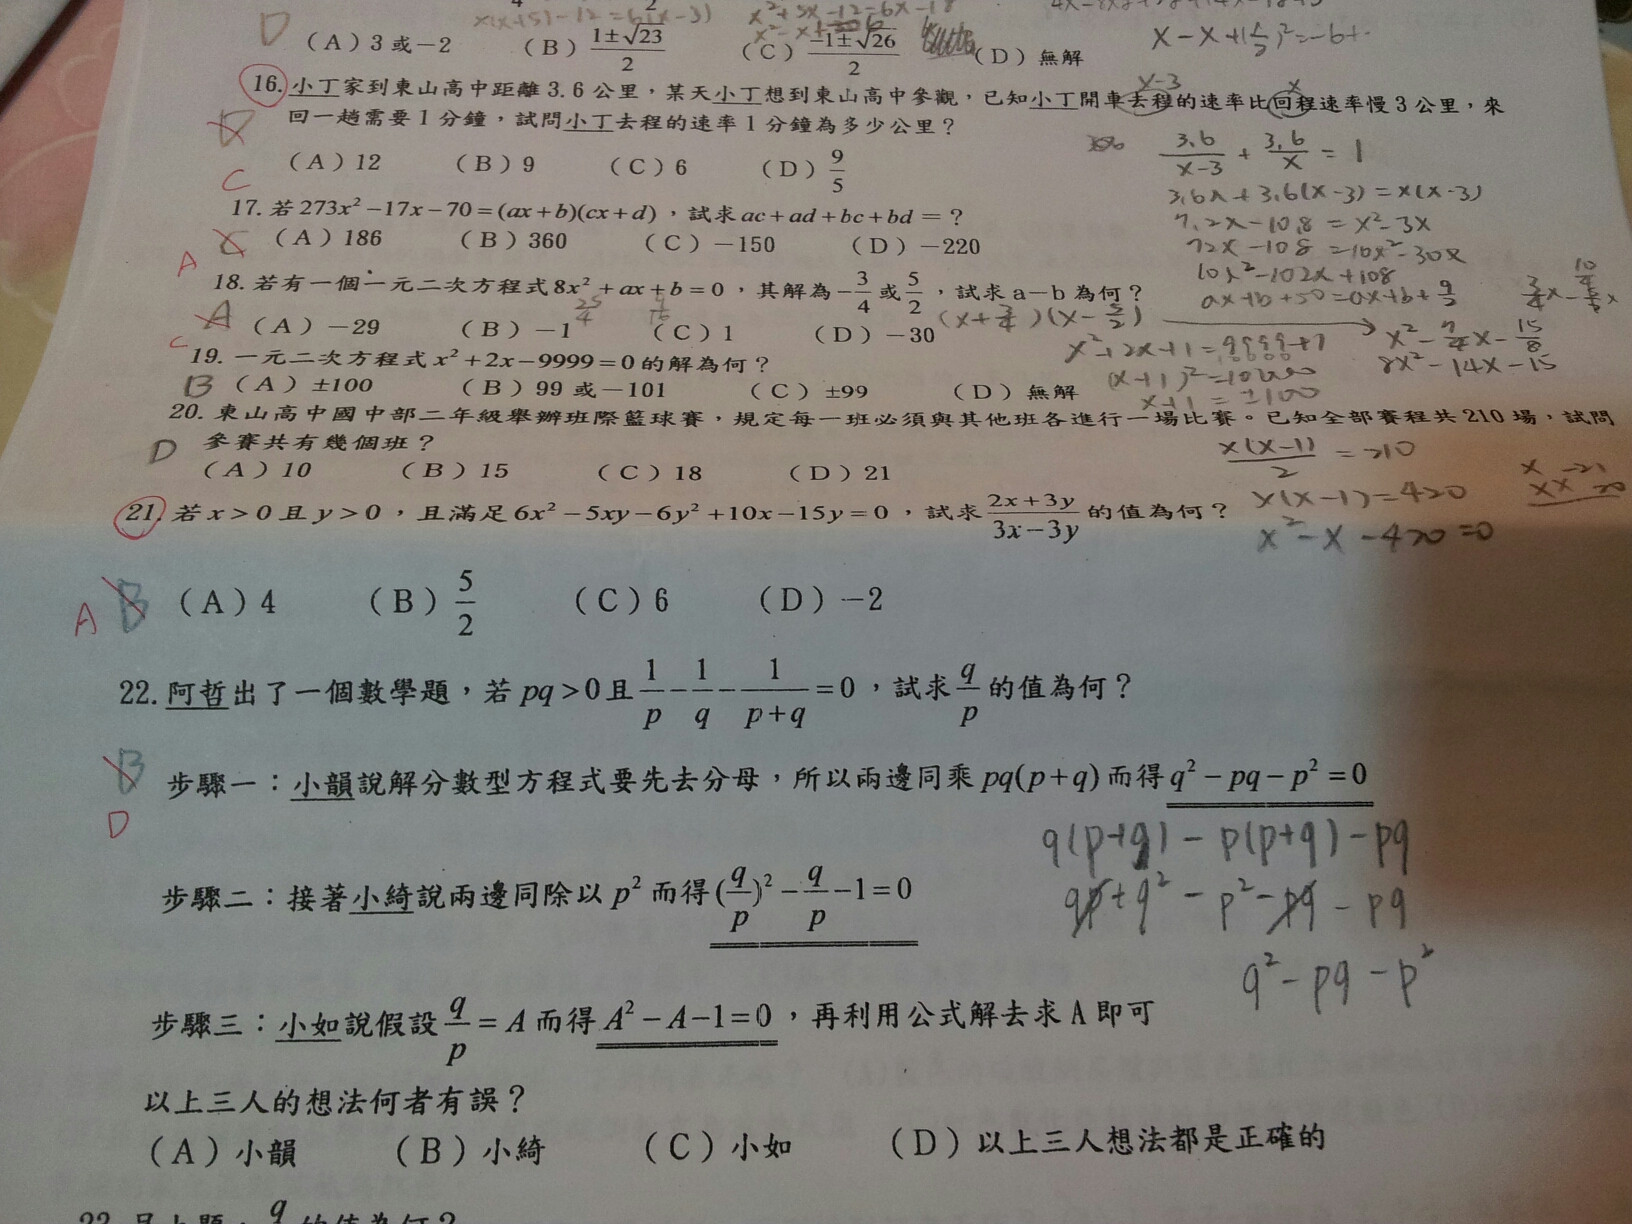 x(x+5)-12=6(x-3)
x²+5x-12=6x-18
D (A)3或-2 (B) (1±√23)/2 (C) (-1±√26)/2 (D)無解
16. 小丁家到東山高中距離3.6公里,某天小丁想到東山高中參觀,已知小丁開車去程的速率比回程速率慢3公里,來
回一趟需要1分鐘,試問小丁去程的速率1分鐘為多少公里?
x-3
x
D C (A)12 (B)9 (C)6 (D) 9/5
3.6/(x-3) + 3.6/x = 1
3.6x+3.6(x-3)=x(x-3)
7.2x-10.8=x²-3x
72x-108=10x²-30x
10x²-102x+108
17. 若273x²-17x-70=(ax+b)(cx+d),試求ac+ad+bc+bd=?
C A (A)186 (B)360 (C)-150 (D)-220
18. 若有一個一元二次方程式8x²+ax+b=0,其解為-3/4或5/2,試求a-b為何?
A C (A)-29 (B)-1 (C)1 (D)-30
(x+3/4)(x-5/2)
x²-7/4x-15/8
8x²-14x-15
19. 一元二次方程式x²+2x-9999=0的解為何?
B (A)±100 (B)99或-101 (C)±99 (D)無解
x²+2x+1=9999+1
(x+1)²=10000
x+1=±100
20. 東山高中國中部二年級舉辦班際籃球賽,規定每一班必須與其他班各進行一場比賽。已知全部賽程共210場,試問
參賽共有幾個班?
D (A)10 (B)15 (C)18 (D)21
x(x-1)/2 =210
x(x-1)=420
x²-x-420=0
x -21
x 20
21. 若x>0且y>0,且滿足6x²-5xy-6y²+10x-15y=0,試求(2x+3y)/(3x-3y)的值為何?
B A (A)4 (B) 5/2 (C)6 (D)-2
22. 阿哲出了一個數學題,若pq>0且1/p-1/q-1/(p+q)=0,試求q/p的值為何?
B D
步驟一:小韻說解分數型方程式要先去分母,所以兩邊同乘pq(p+q)而得q²-pq-p²=0
q(p+q)-p(p+q)-pq
qp+q²-p²-pq-pq
q²-pq-p²
步驟二:接著小綺說兩邊同除以p²而得(q/p)²-q/p-1=0
步驟三:小如說假設q/p=A而得A²-A-1=0,再利用公式解去求A即可
以上三人的想法何者有誤?
(A)小韻 (B)小綺 (C)小如 (D)以上三人想法都是正確的